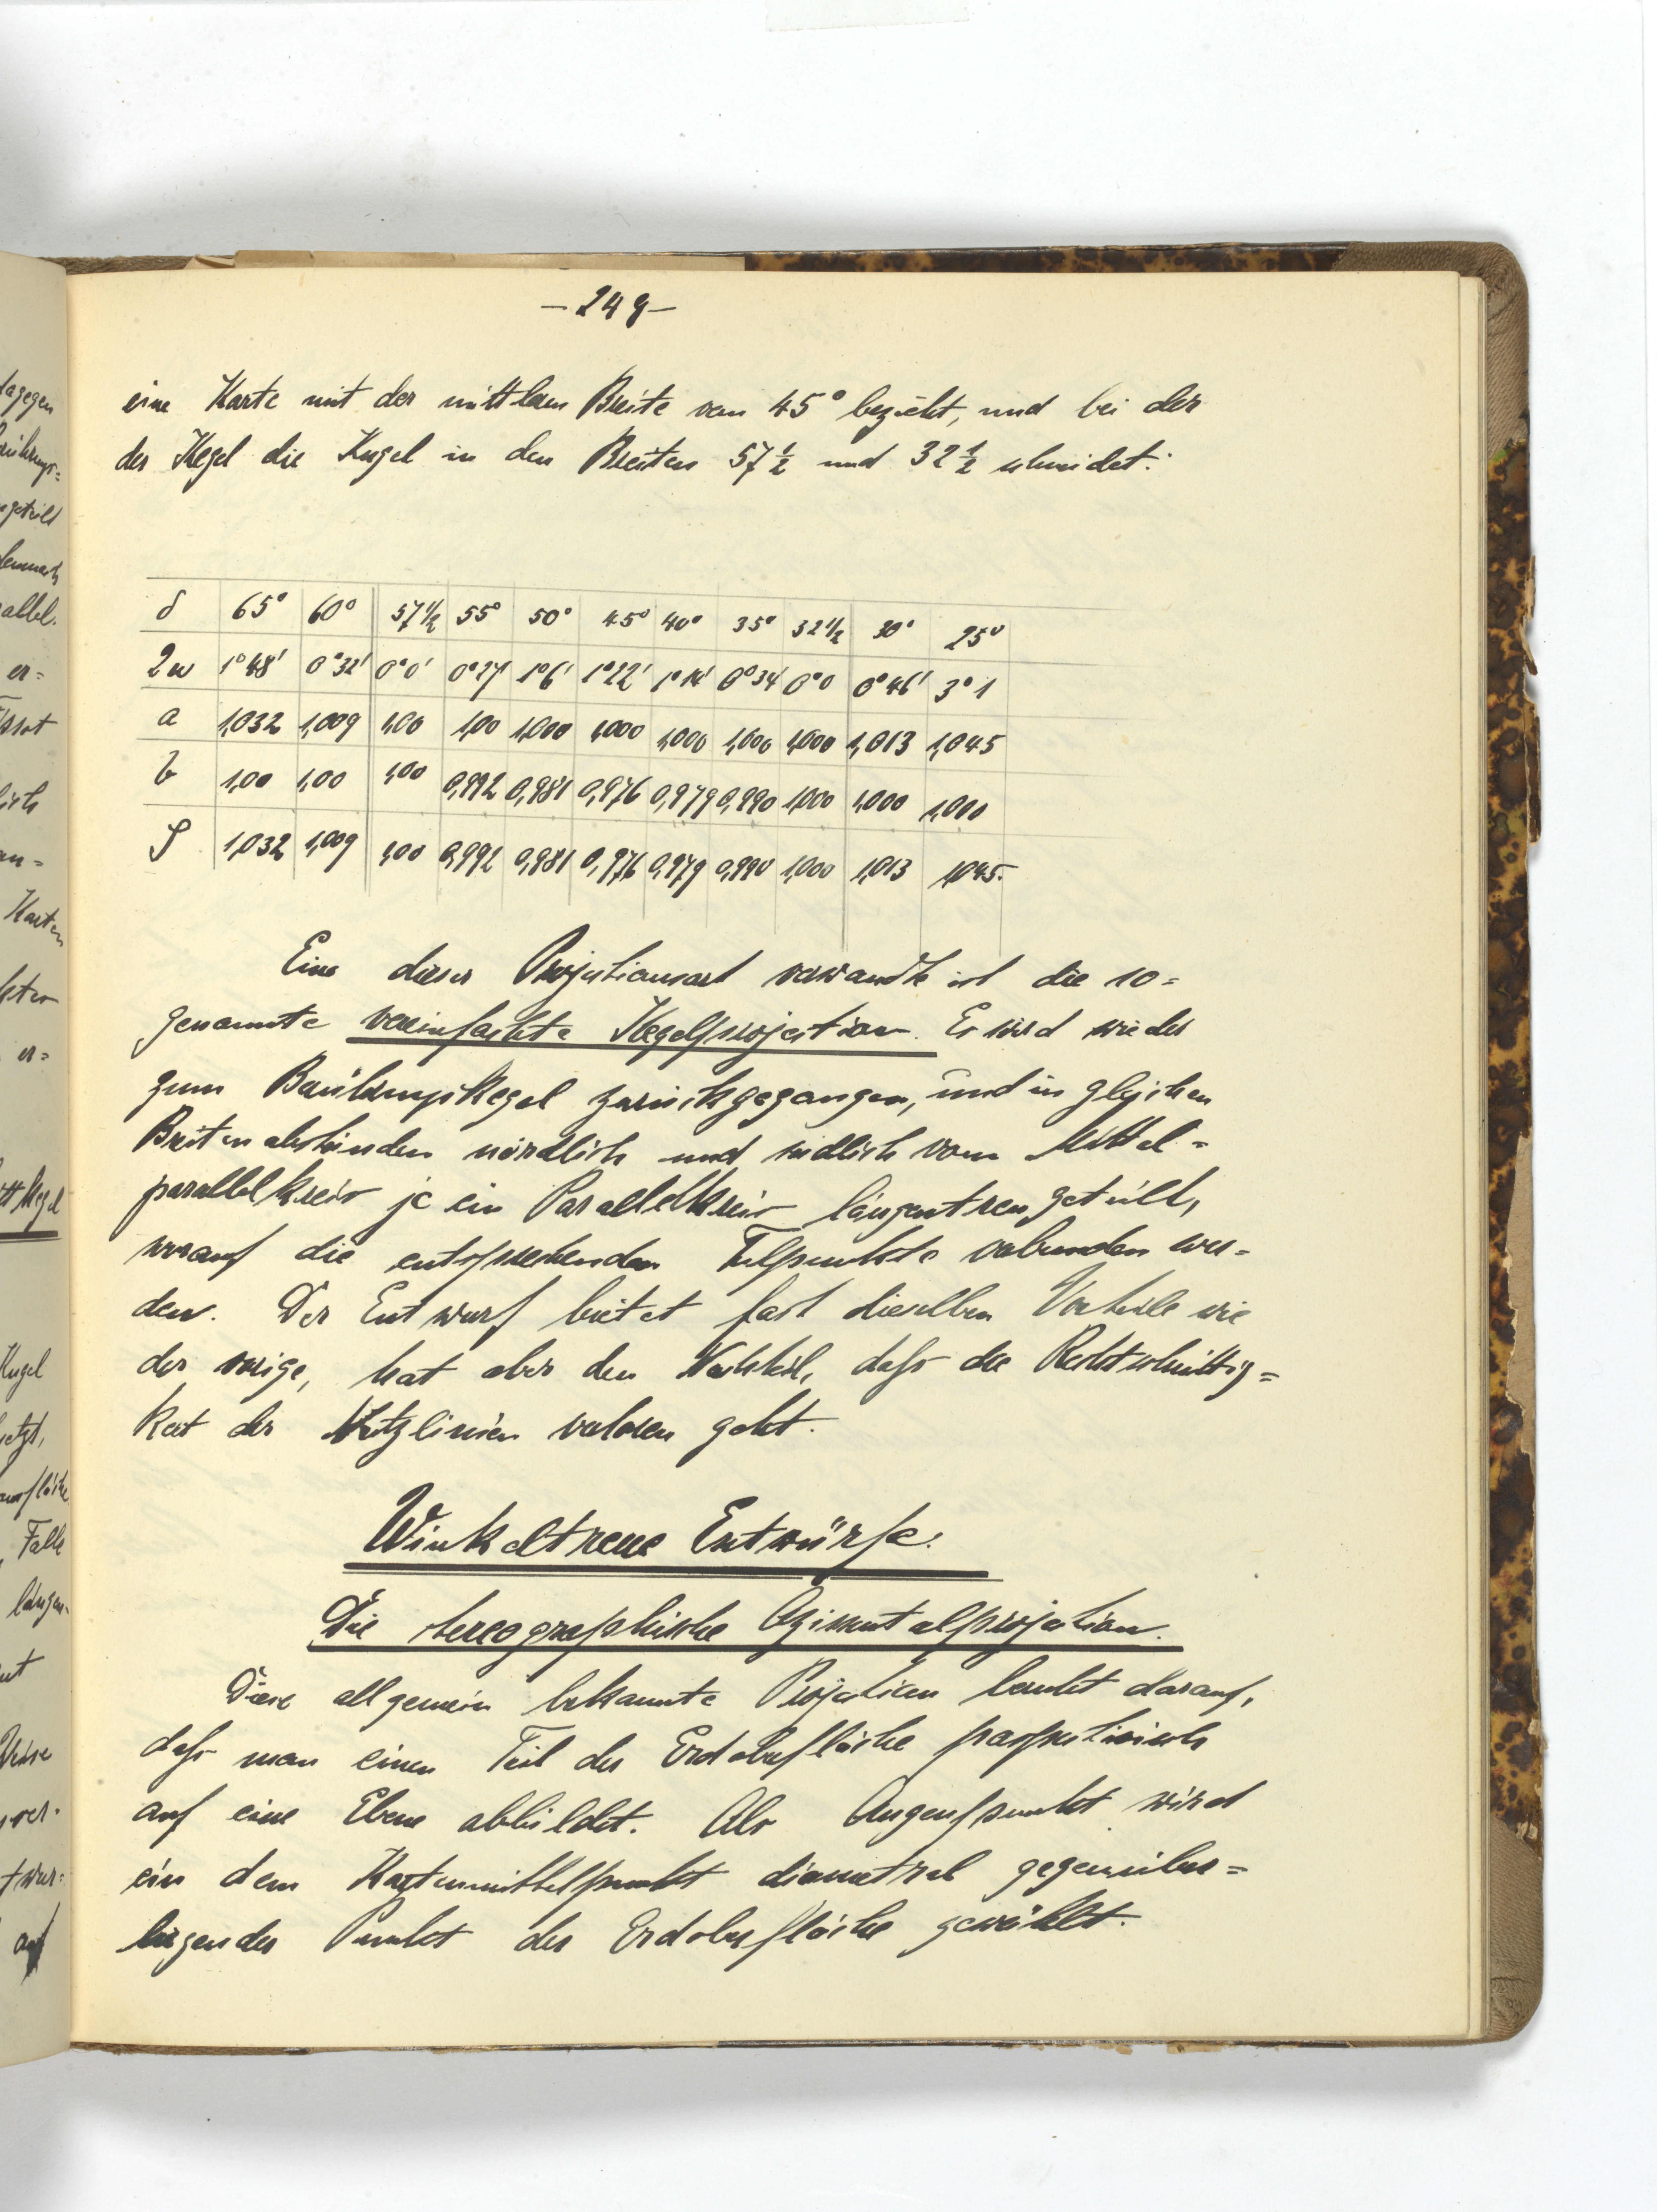 - 249 -
eine Karte mit der mittleren Breite von 45° bezieht, und bei der
der Kegel die Kugel in den Breiten 57 1/2 und 32 1/2 schneidet:
δ 65° 60° 57 1/2 55° 50° 45° 40° 35° 32 1/2 30° 25°
2w 1°48' 0°32' 0°0' 0°27' 1°6' 1°22' 1°14' 0°34' 0°0 0°46' 3°1
a 1,032 1,009 1,00 1,00 1,000 1,000 1,000 1,000 1,000 1,013 1,045
b 1,00 1,00 1,00 0,992 0,981 0,976 0,979 0,990 1,000 1,000 1,000
S 1,032 1,009 1,00 0,992 0,981 0,976 0,979 0,990 1,000 1,013 1,045.
Eine dieser Projectionsart verwandte ist die so=
genannte vereinfachte Kegelprojection. Es wird wieder
zum Berührungskegel zurückgegangen, und in gleichen
Breitenabständen nördlich und südlich vom Mittel=
parallelkreis je ein Parallelkreis längentreu geteilt,
worauf die entsprechenden Teilpunkte verbunden wer=
den. Der Entwurf bietet fast dieselben Vorteile wie
der vorige, hat aber den Nachteil, daß die Rechtschnittig=
keit der Netzlinien verloren geht.
Winkeltreue Entwürfe.
Die stereographische Azimutalprojection.
Diese allgemein bekannte Projection beruht darauf,
daß man einen Teil der Erdoberfläche perspectivisch
auf eine Ebene abbildet. Als Augenpunkt wird
ein dem Kartenmittelpunkt diametral gegenüber=
liegender Punkt der Erdoberfläche gewählt.
dagegen
er=
Karten
er=
Kugel
Falle
längen-
auf